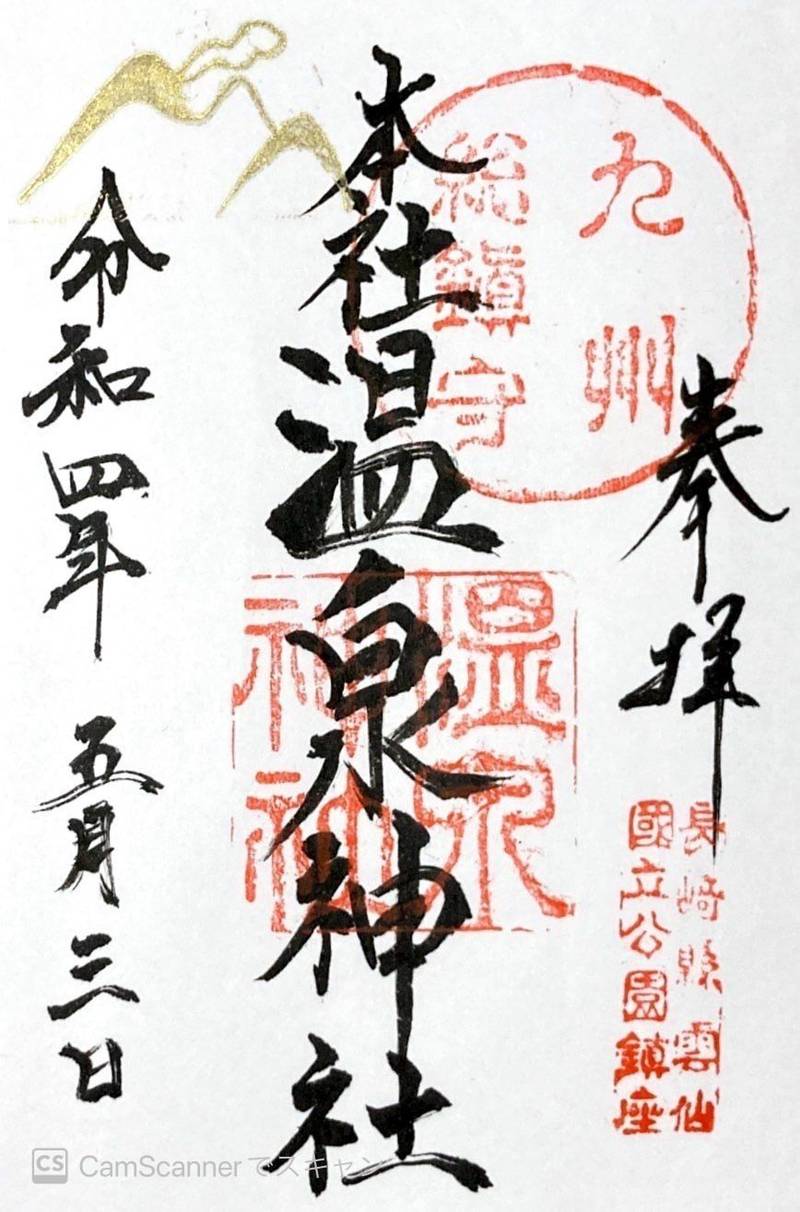 奉拝
長崎縣雲仙
國立公園鎮座
九州
総鎮守
本社温泉神社
温泉
神社
令和四年 五月三日
CS CamScanner でスキャン